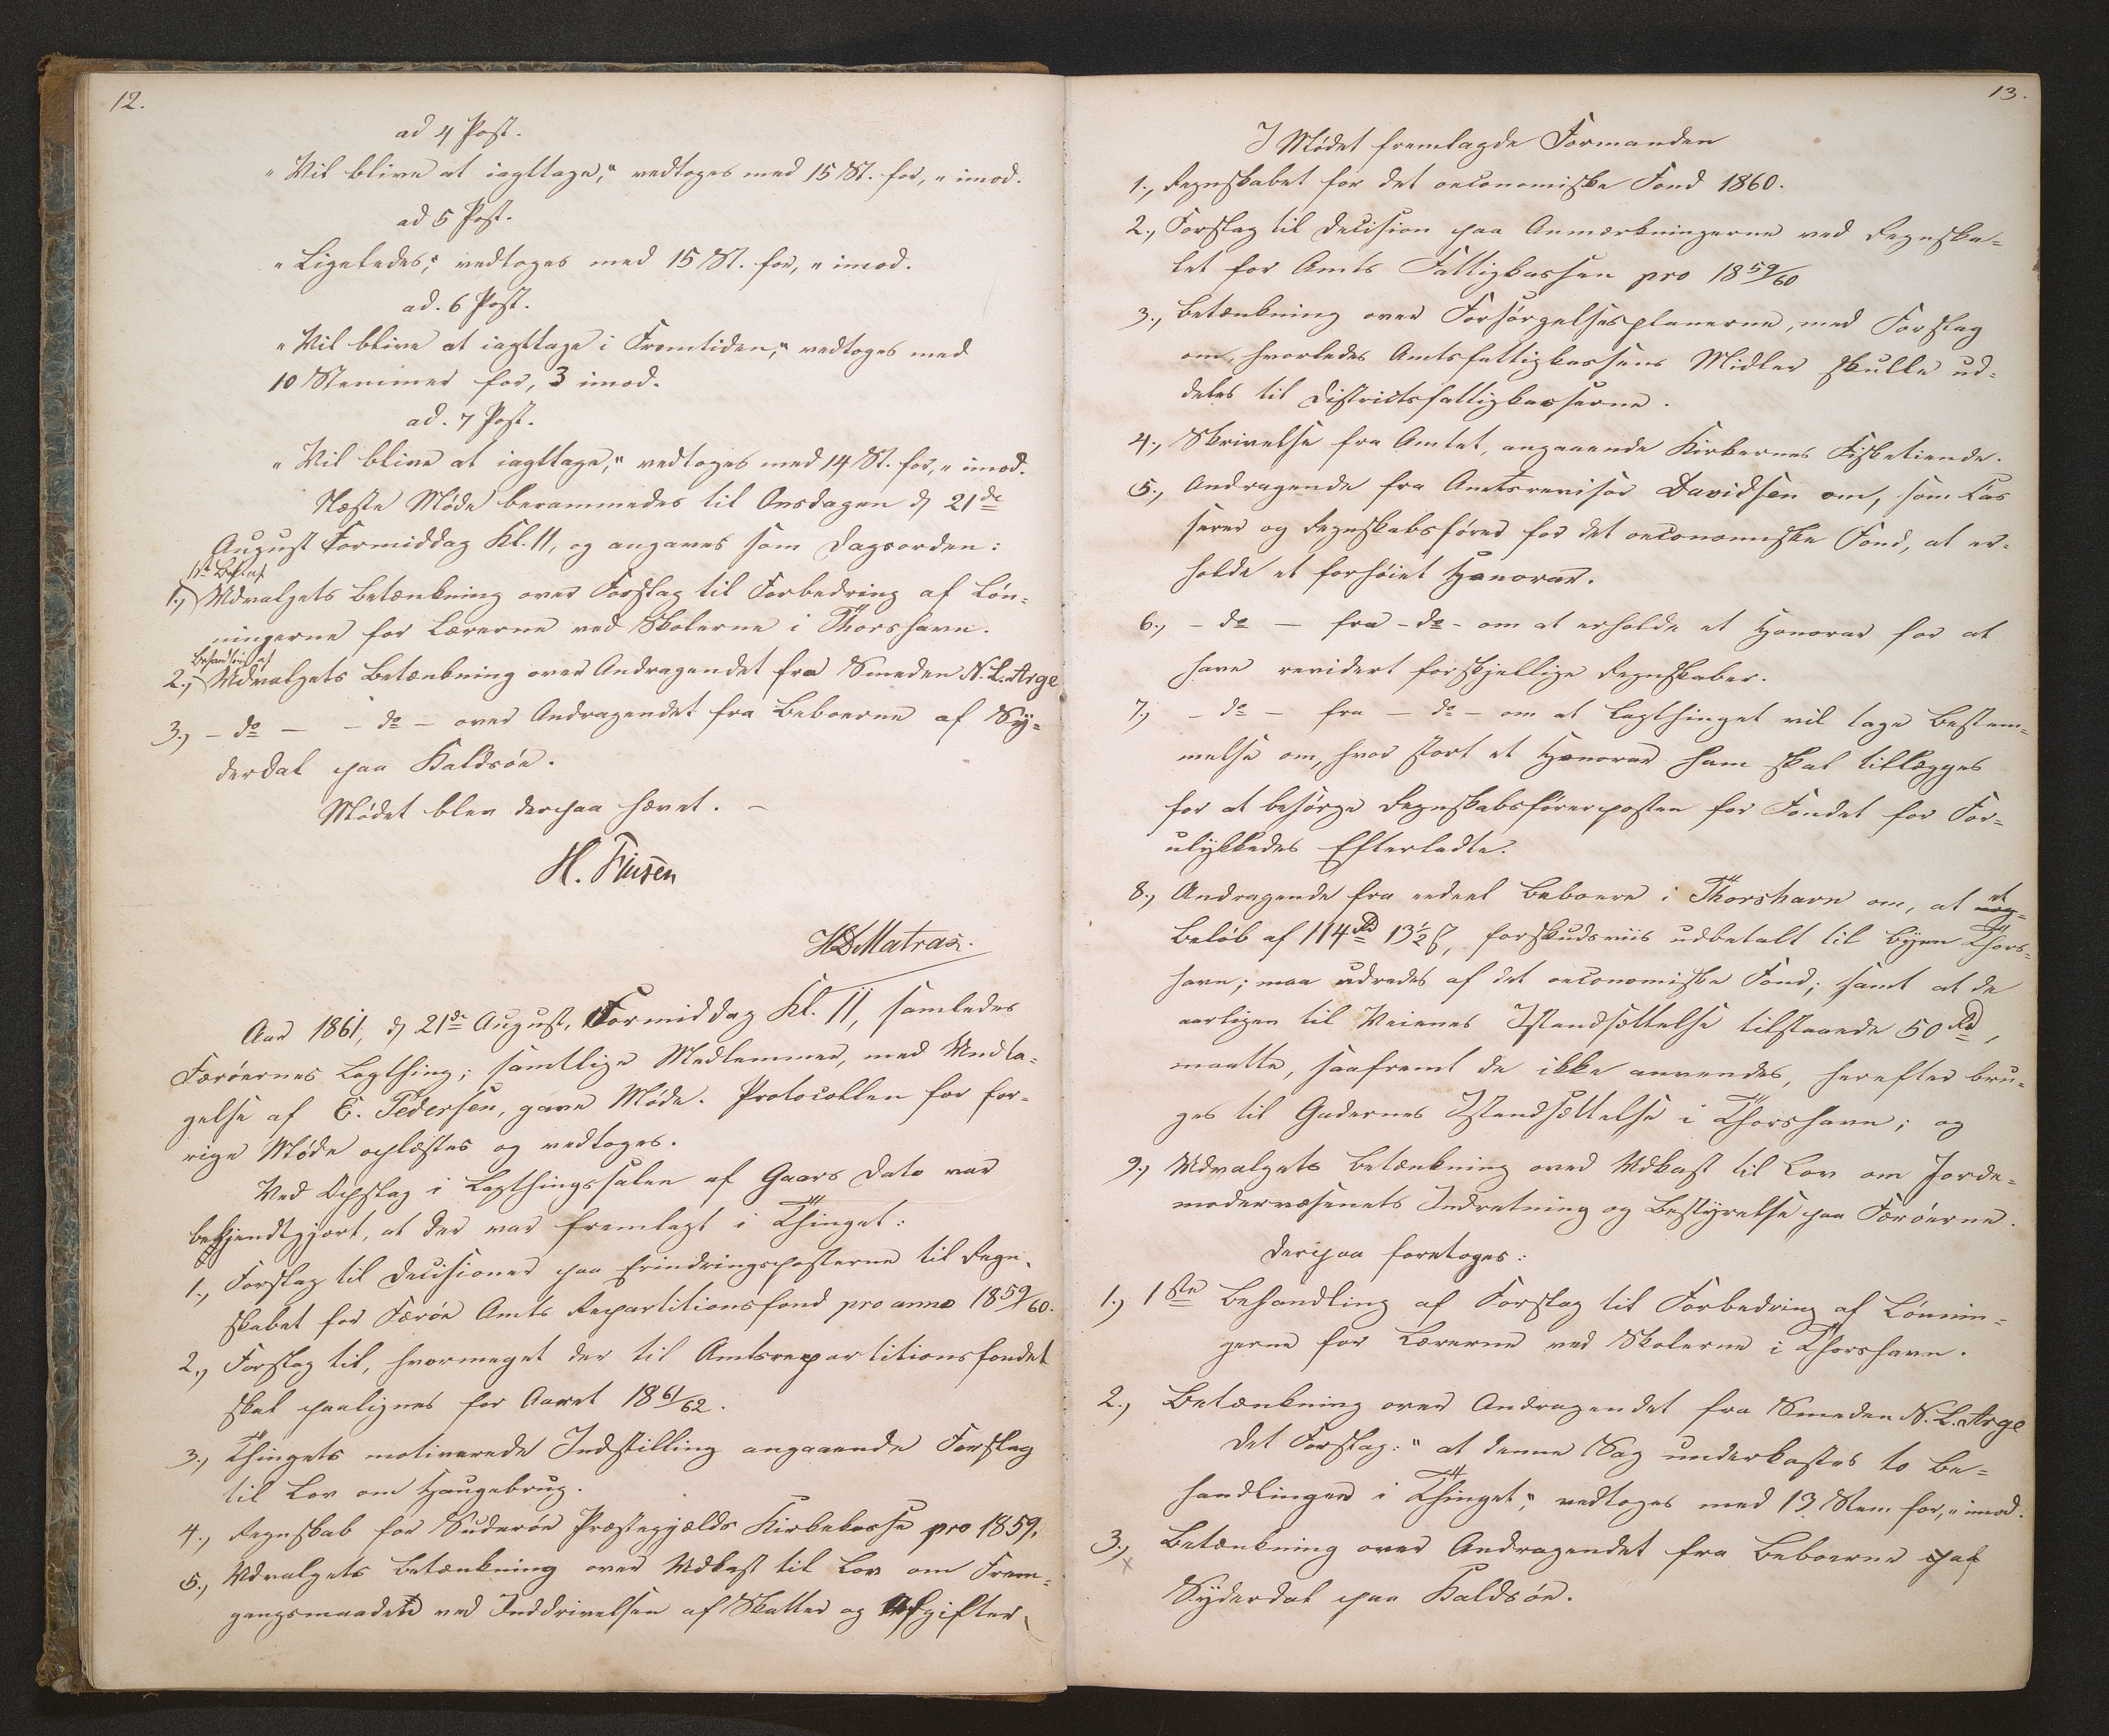 12.
ad 4 Post.
"Vil blive at iagttage," vedtoges med 15 St. for, " imod.
ad 5 Post.
"Ligeledes," vedtoges med 15 St. for, " imod.
ad. 6 Post.
"Vil blive at iagttage i Fremtiden," vedtoges med
10 Stemmer for, 3 imod.
ad. 7 Post.
"Vil blive at iagttage," vedtoges med 14 St. for, " imod.
Næste Møde berammedes til Onsdagen d. 21de
August Formiddag Kl. 11, og angaves som Dagsorden:
1ste Beh. af
1., Udvalgets Betænkning over Forslag til Forbedring af Løn-
ningerne for Lærerne ved Skolerne i Thorshavn.
Behandling af
2., Udvalgets Betænkning over Andragendet fra Smeden N. L. Arge
3., - do - - do - over Andragendet fra Beboerne af Sy-
derdal paa Kaldsøe.
Mødet blev derpaa hævet. -
H. Finsen
HDMatras.
Aar 1861, d. 21de August, Formiddag Kl. 11, samledes
Færøernes Lagthing; samtlige Medlemmer, med Undta-
gelse af E. Pedersen, gave Møde. Protocollen for for-
rige Møde oplæstes og vedtoges.
Ved Opslag i Lagthingssalen af Gaars Dato var
bekjendtgjort, at der var fremlagt i Thinget:
1., Forslag til Decisioner paa Erindringsposterne til Regn-
skabet for Færøe Amts Repartitionsfond pro anno 1859/60.
2., Forslag til, hvormeget der til Amtsrepartitionsfondet
skal paalignes for Aaret 1861/62.
3., Thingets motiverede Indstilling angaaende Forslag
til Lov om Haugebrug.
4., Regnskab for Suderøe Præstegjælds Kirkekasse pro 1859.
5., Udvalgets Betænkning over Udkast til Lov om Frem-
gangsmaaden ved Inddrivelsen af Skatter og Afgifter.
13.
I Mødet fremlagde Formanden
1., Regnskabet for det oeconomiske Fond 1860.
2., Forslag til Decision paa Anmærkningerne ved Regnska-
bet for Amts Fattigkassen pro 1859/60
3., Betænkning over Forsørgelsesplanerne, med Forslag
om, hvorledes Amtsfattigkassens Midler skulle ud-
deles til Districtsfattigkasserne.
4., Skrivelse fra Amtet, angaaende Kirkernes Fisketiende.
5., Andragende fra Amtsrevisor Davidsen om, som Cas
serer og Regnskabsfører for det oeconomiske Fond, at er-
holde et forhøiet Honorar.
6., - do - fra - do - om at erholde et Honorar for at
have revideret forskjellige Regnskaber.
7., - do - fra - do - om at Lagthinget vil tage Bestem-
melse om, hvor stort et Honorar ham skal tillægges
for at besørge Regnskabsførerposten for Fondet for For-
ulykkedes Efterladte.
8., Andragende fra endeel Beboere i Thorshavn om, at et
Beløb af 114 Rd 13½ ß, forskudsviis udbetalt til Byen Thors-
havn; maa udredes af det oeconomiske Fond; samt at de
aarligen til Veienes Istandsættelse tilstaaede 50 Rd,
maatte, saafremt de ikke anvendes, herefter bru-
ges til Gadernes Istandsættelse i Thorshavn; og
9., Udvalgets Betænkning over Udkast til Lov om Jorde-
modervæsenets Indretning og Bestyrelse paa Færøerne.
Derpaa foretoges:
1., 1ste Behandling af Forslag til Forbedring af Lønnin-
gerne for Lærerne ved Skolerne i Thorshavn.
2., Betænkning over Andragendet fra Smeden N. L. Arge
Det Forslag: "at denne Sag underkastes to Be-
handlinger i Thinget," vedtoges med 13 Stem. for, " imod.
3., Betænkning over Andragendet fra Beboerne af
x
Syderdal paa Kaldsøe.